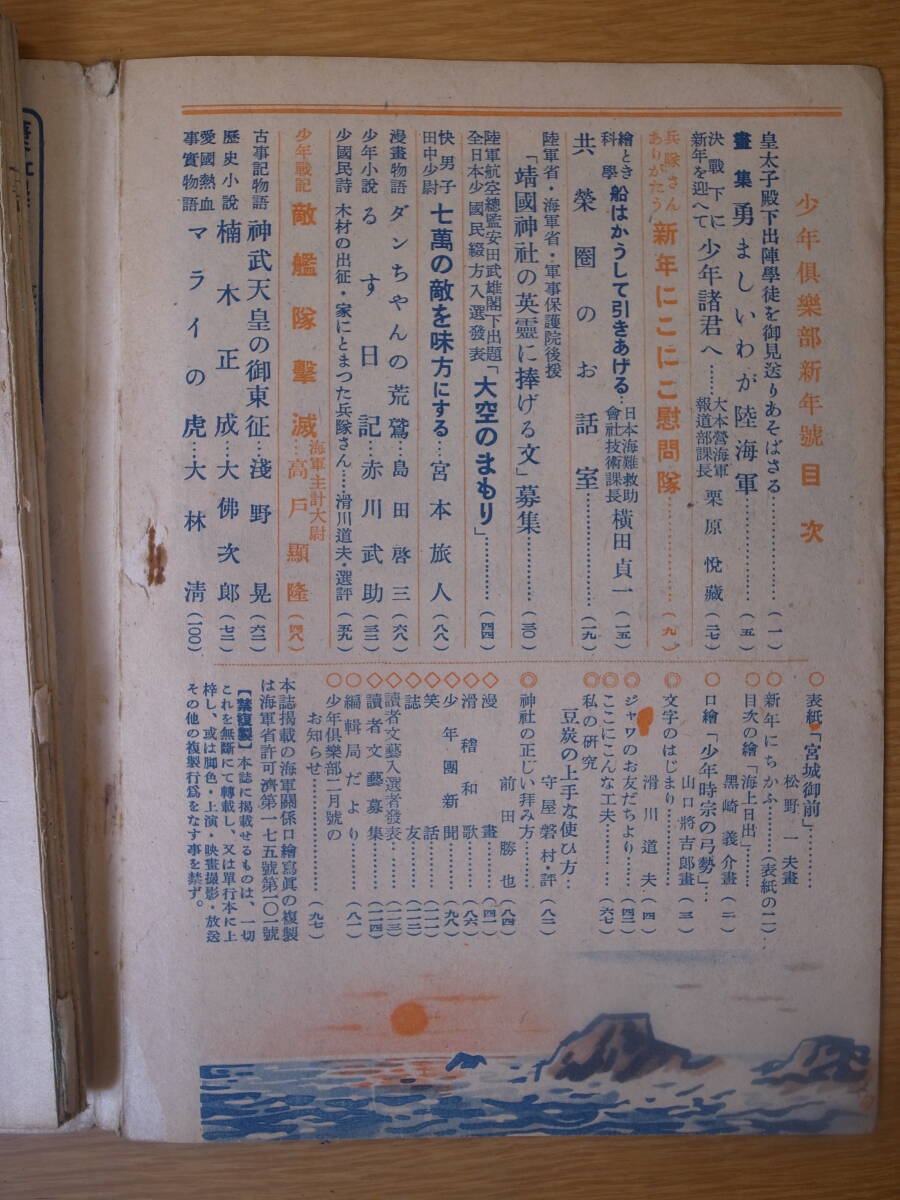 少年倶樂部新年號目次
皇太子殿下出陣學徒を御見送りあそばさる…………(一)
畫集 勇ましいわが陸海軍…………(五)
決戰下に新年を迎へて 少年諸君へ……大本營海軍報道部課長 栗原悅藏(二七)
兵隊さんありがたう 新年にこにこ慰問隊…………(九)
繪とき科學 船はかうして引きあげる…日本海難救助會社技術課長 橫田貞一(一五)
共榮圈のお話室…………(一九)
陸軍省・海軍省・軍事保護院後援
「靖國神社の英靈に捧げる文」募集…………(三〇)
陸軍航空總監安田武雄閣下出題
全日本少國民綴方入選發表 「大空のまもり」…………(四四)
快男子田中少尉 七萬の敵を味方にする…宮本旅人(八八)
漫畫物語 ダンちゃんの荒鷲…島田啓三(六八)
少年小說 るす日記…赤川武助(三二)
少國民詩 木材の出征・家にとまつた兵隊さん……滑川道夫・選評(五九)
少年戰記 敵艦隊擊滅…海軍主計大尉 高戶顯隆(四八)
古事記物語 神武天皇の御東征…淺野晃(六二)
歷史小說 楠木正成…大佛次郎(七二)
愛國熱血事實物語 マライの虎…大林淸(一〇〇)
○表紙「宮城御前」…………
松野一夫畫
○新年にちかふ……(表紙の二)
○目次の繪「海上日出」……
黑崎義介畫(二)
○口繪「少年時宗の弓勢」…
山口將吉郞畫(三)
○文字のはじまり…………
滑川道夫(四)
◎ジャワのお友だちより……(四二)
◎ここにこんな工夫……(六七)
◎私の硏究
豆炭の上手な使ひ方…
守屋磐村・評(八二)
◎神社の正しい拜み方……
前田勝也(八四)
◇漫畫……(四一)
◇滑稽和歌……(八六)
◇少年團新聞……(九八)
◇笑話……(一一一)
◇誌友……(一一二)
◇讀者文藝入選者發表…(一一三)
◇讀者文藝募集……(一一四)
○編輯局だより……(八一)
○少年倶樂部二月號の
お知らせ…………(九七)
本誌揭載の海軍關係口繪寫眞の複製
は海軍省許可濟第一七五號第一〇一號
【禁複製】本誌に揭載せるものは、一切
これを無斷にて轉載し、又は單行本に上
梓し、或は脚色・上演・映畫撮影・放送
その他の複製行爲をなす事を禁ず。